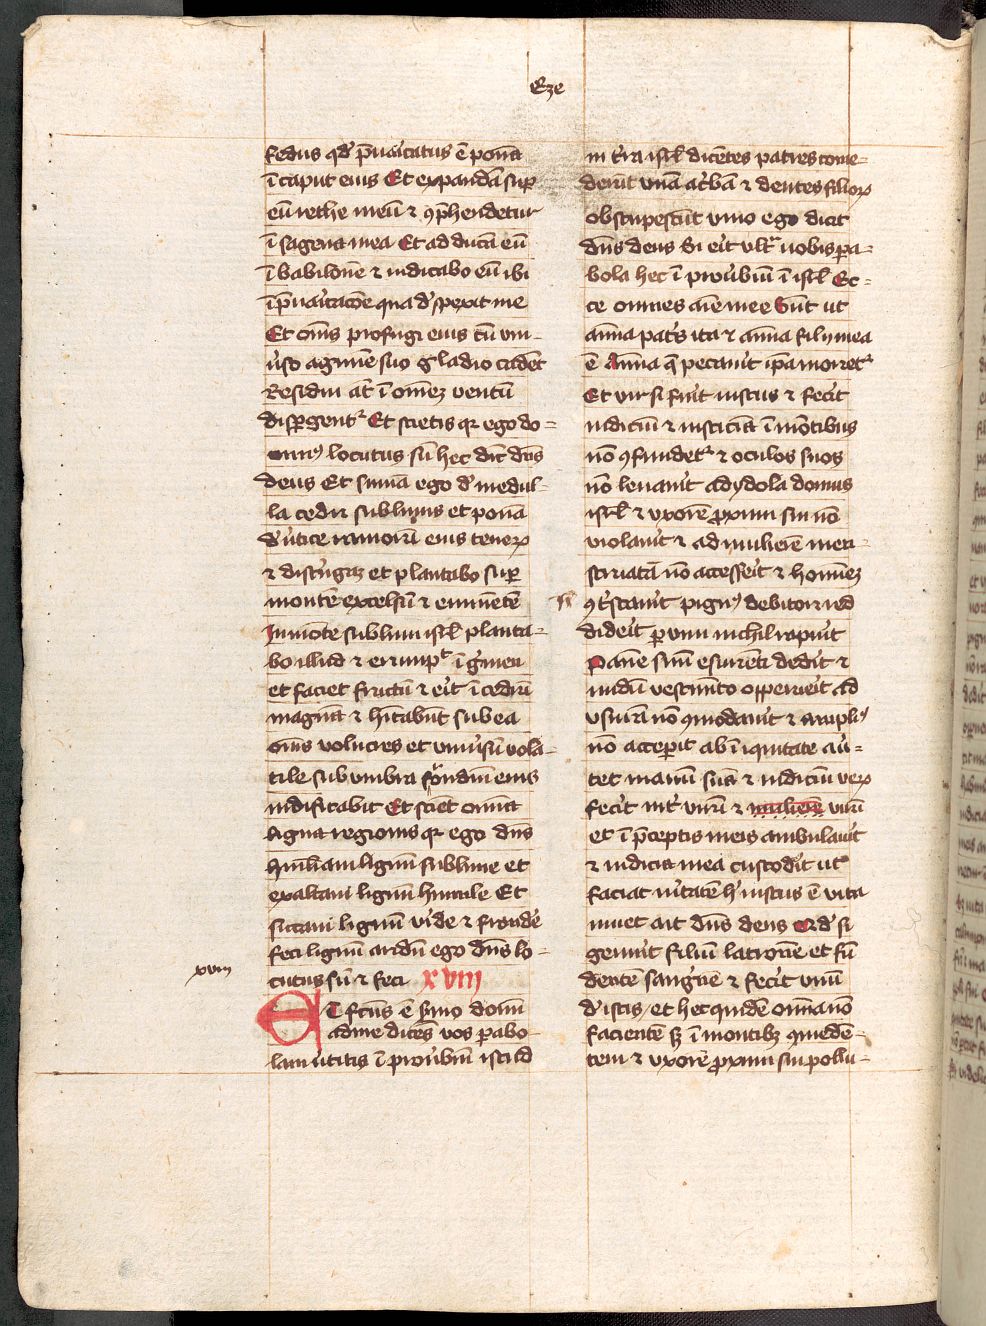 Eze
fedus qd' p̄uaricatus ē ponā
ī caput eius Et expandā sup
eū rethe meū ⁊ ꝯp̄hendetur
ī sagena mea Et adducā eū
ī babilonē ⁊ iudicabo eū ibi
ī p̄uaricacōe qua d'spexit me
Et om̄s profugi eius cū vni-
u'so agmīe suo gladio cadēt
Residui aūt ī om̄eꝫ ventū
disꝑgent᷑ Et scietis qꝛ ego do=
minꝰ locutus sū hec dic̄ dn̄s
deus Et sumā ego d' medul-
la cedri sublimis et ponā
d' u'tice ramorū eius teneroꝝ
⁊ distrīgaꝫ et plantabo sup
montē excelsū ⁊ eminētē
In mōte sublimi isrl̄ planta-
bo illud ⁊ erumpet ī g'men
et faciet fructū ⁊ erit ī cedrū
magnā ⁊ hītabūt sub ea
om̄s volucres et vniu'sū vola-
tile sub vmbra frondiū eius
nidificabit Et sciēt om̄ia
ligna regionis qꝛ ego dn̄s
hūiliaui lignū sublime et
exaltaui lignū humile Et
siccaui lignū viride ⁊ frondē
feci lignū aridū ego dn̄s lo-
cutus sū ⁊ feci xviii
xviii
ET fc̄us ē sermo domī
ad me dicēs vos parabo-
lam u'titis ī prouerbiū istud
in t'ra isrl̄ dicētes patres come-
derūt vuā acerbā ⁊ dentes filioꝝ
obstupescūt viuo ego dicit
dn̄s deus Si erit vltra uobis pa-
bola hec ī prouerbiū ī isrl̄ Ec-
ce omnes aīe mee sūt ut
anīa patris ita ⁊ anīa filij mea
ē Anīa q̄ peccauit ip̄a moriet᷑
Et vir si fuīt iustus ⁊ fec'it
iudiciū ⁊ iusticiā ī mōtibus
nō ꝯmedet᷑ ⁊ oculos suos
nō leuauit ad ydola domus
isrl̄ ⁊ vxorē proximi sui nō
violauit ⁊ ad mulierē men-
striatā nō accesserit ⁊ homīeꝫ
nō ꝯt'stauit pignꝰ debitori red
diderit ꝑ vim nichil rapuit
Panē suū esurienti dederit ⁊
nudū vestimēto operuerit Ad
vsurā nō ꝯmodauit ⁊ ampliꝰ
nō acceperit ab īiquitate au'=
tet manū suā ⁊ iudiciū veꝝ
fec'it int' virū ⁊ mulierē virū
et ī p̄ceptis meis ambulau'it
⁊ iudicia mea custodierit ut
faciat u'itatē h' iustus ē vita
viuet ait dn̄s deus Qd' si
genu'it filiū latronē et fū
dentē sanguinē ⁊ fec'it vnū
d' istis et hec quidē om̄ia nō
facientē sꝫ ī montibꝫ ꝯmedē-
tem ⁊ vxorē proximi sui pollu-